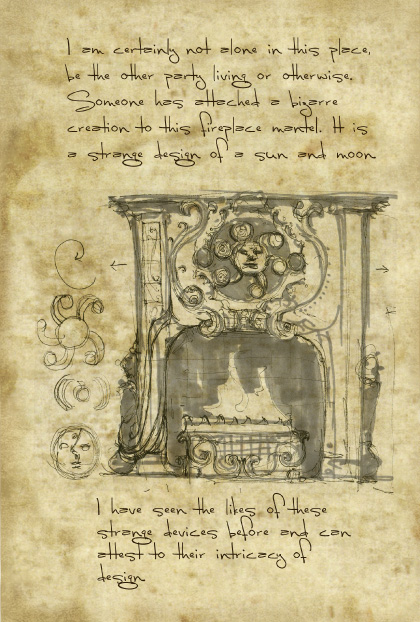 I am certainly not alone in this place,
be the other party living or otherwise.
Someone has attached a bizarre
creation to this fireplace mantel. It is
a strange design of a sun and moon
I have seen the likes of these
strange devices before and can
attest to their intricacy of
design